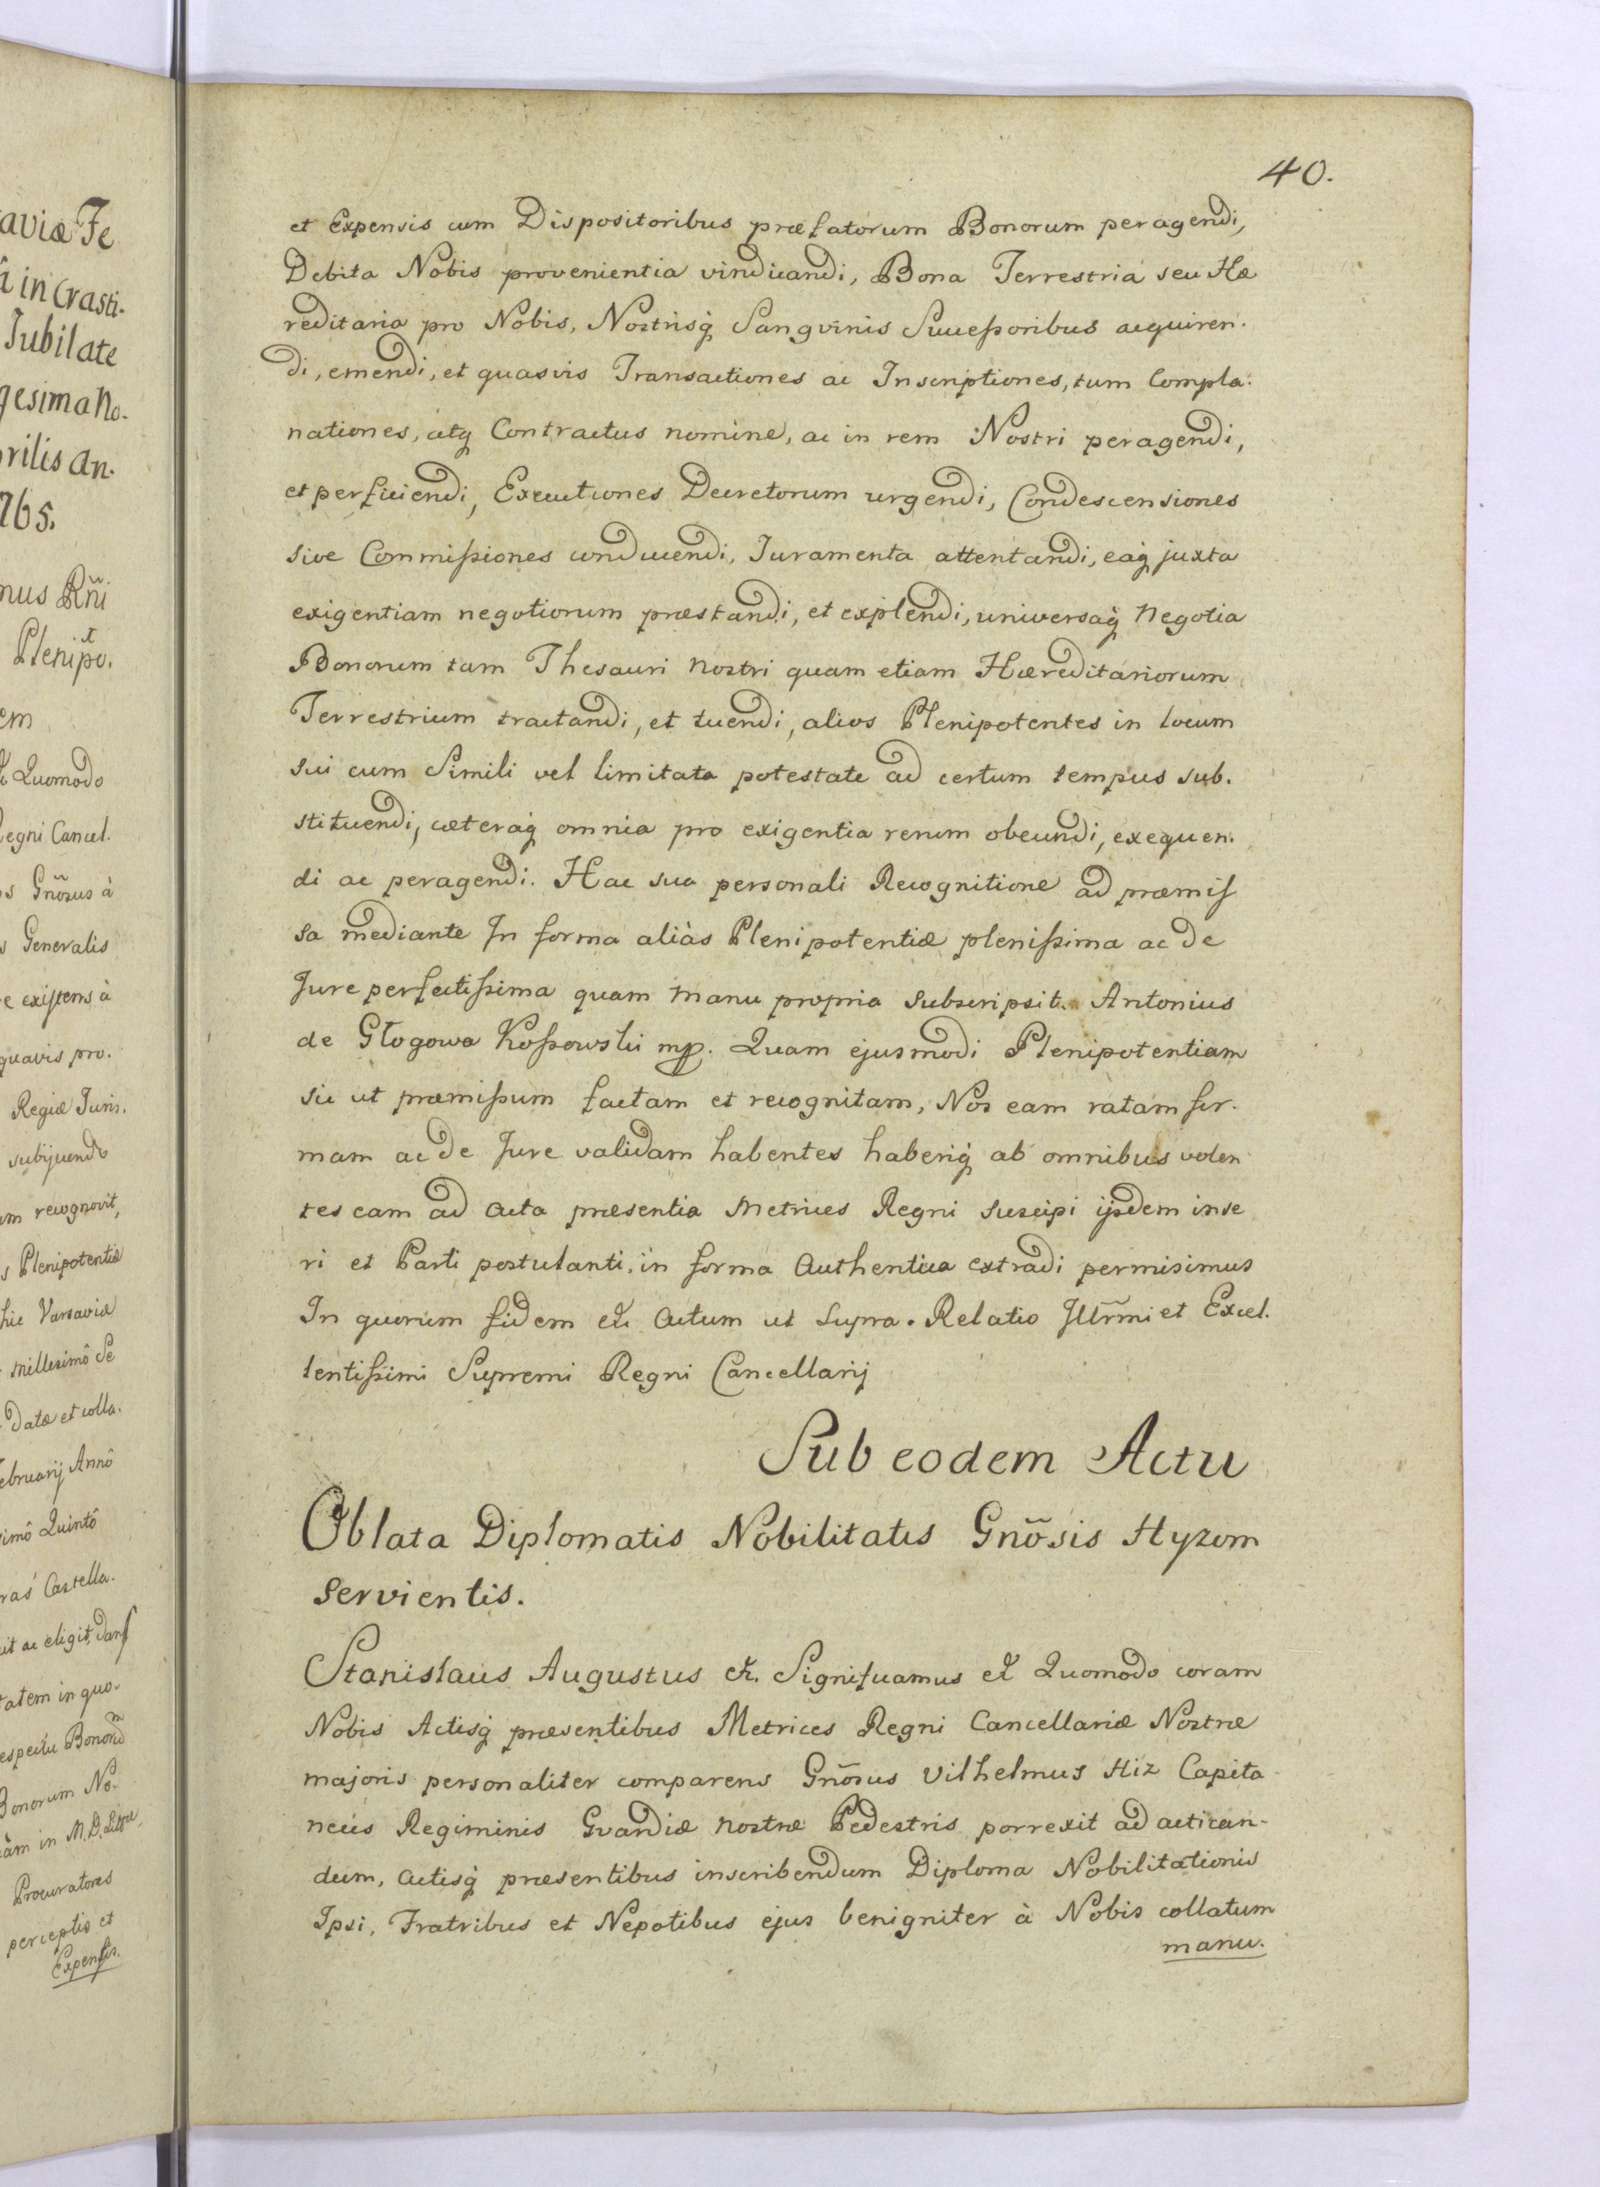 40.
et Expensis cum Dispositoribus præfatorum Bonorum peragendi,
Debita Nobis provenientia vindicandi, Bona Terrestria seu Hæ
reditaria pro Nobis, Nostrisq̃ Sangvinis Successoribus acquiren.
di, emendi, et quasvis Transactiones ac Inscriptiones, tum Compla.
nationes, atq̃ Contractus nomine, ac in rem Nostri peragendi,
et perficiendi, Executiones Decretorum urgendi, Condescensiones
sive Commissiones conducendi, Juramenta attentandi, eaq̃ juxta
exigentiam negotiorum præstandi, et explendi, universaq̃ Negotia
Bonorum tam Thesauri Nostri quam etiam Hæreditariorum
Terrestrium tractandi, et tuendi, alios Plenipotentes in locum
sui cum Simili vel limitata potestate ad certum tempus sub.
stituendi, cæteraq̃ omnia pro exigentia rerum obeundi, exequen.
di ac peragendi. Hac sua personali Recognitione ad præmis
sa mediante In forma aliàs Plenipotentiæ plenissima ac de
Jure perfectissima quam manu propria subscripsit. Antonius
de Głogowa Kossowski mp. Quam ejusmodi Plenipotentiam
sic ut præmissum factam et recognitam, Nos eam ratam fir.
mam ac de Jure validam habentes haberiq̃ ab omnibus volen
tes eam ad Acta præsentia Metrices Regni suscipi ijsdem inse
ri et Parti postulanti, in forma Authentica extradi permisimus
In quorum fidem ett Actum ut supra. Relatio Jllr̃mi et Excel.
lentissimi Supremi Regni Cancellarij
Sub eodem Actu
Oblata Diplomatis Nobilitatis Gnõsis Hyzom
servientis.
Stanislaus Augustus ett. Significamus ett Quomodo coram
Nobis Actisq̃ præsentibus Metrices Regni Cancellariæ Nostræ
majoris personaliter comparens Gnõsus Vilhelmus Hiz Capita
neus Regiminis Gvardiæ nostræ Pedestris porrexit ad actican-
dum, Actisq̃ præsentibus inscribendum Diploma Nobilitationis
Ipsi, Fratribus et Nepotibus ejus benigniter à Nobis collatum
manu.